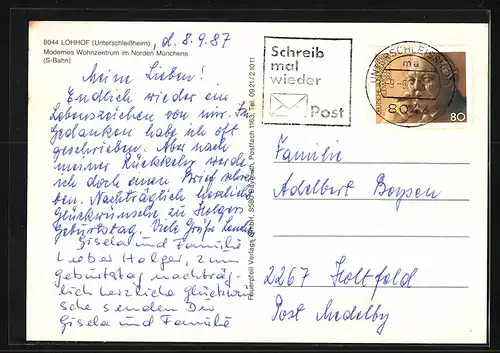 8044 LOHHOF (Unterschleißheim)
Modernes Wohnzentrum im Norden Münchens
(S-Bahn)
, d. 8.9.87
Meine Lieben!
Endlich wieder ein
Lebenszeichen von mir. In
Gedanken habe ich oft
geschrieben. Aber nach
meiner Rückkehr werde
ich doch einen Brief schrei
ben. Nachträglich herzliche
Glückwünsche zu Holgers
Geburtstag. Viele Grüße
Gisela und Familie
Lieber Holger, zum
Geburtstag nachträg-
lich herzliche Glückwün
sche senden Dir
Gisela und Familie
Schreib
mal
wieder
Post
UNTERSCHLEISSHEIM
ma
80
80
Familie
Adelbert Boysen
2267 Holtfeld
Post Medelby